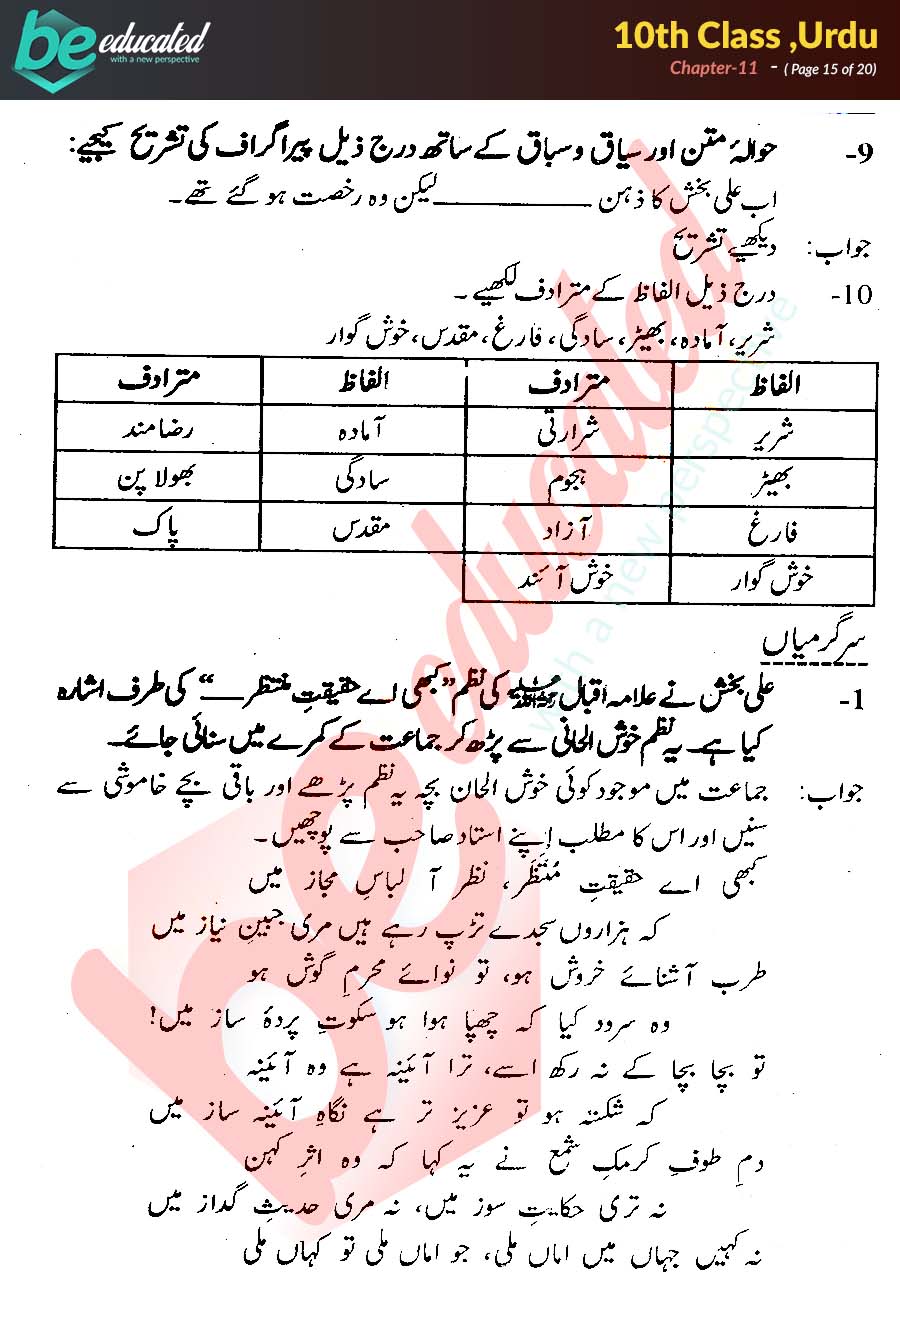 be educated
with a new perspective
10th Class ,Urdu
Chapter-11 - ( Page 15 of 20)
9- حوالۂ متن اور سیاق و سباق کے ساتھ درج ذیل پیراگراف کی تشریح کیجیے:
اب علی بخش کا ذہن ــــــــــــــــ لیکن وہ رخصت ہو گئے تھے۔
جواب: دیکھیے تشریح
10- درج ذیل الفاظ کے مترادف لکھیے۔
شریر، آمادہ، بھیڑ، سادگی، فارغ، مقدس، خوش گوار
الفاظ مترادف الفاظ مترادف
شریر شرارتی آمادہ رضامند
بھیڑ ہجوم سادگی بھولا پن
فارغ آزاد مقدس پاک
خوش گوار خوش آئند
سرگرمیاں
1- علی بخش نے علامہ اقبال رحمۃ اللہ علیہ کی نظم ”کبھی اے حقیقتِ منتظر ــــ“ کی طرف اشارہ
کیا ہے۔ یہ نظم خوش الحانی سے پڑھ کر جماعت کے کمرے میں سنائی جائے۔
جواب: جماعت میں موجود کوئی خوش الحان بچہ یہ نظم پڑھے اور باقی بچے خاموشی سے
سنیں اور اس کا مطلب اپنے استاد صاحب سے پوچھیں۔
کبھی اے حقیقتِ مُنتَظَر، نظر آ لباسِ مجاز میں
کہ ہزاروں سجدے تڑپ رہے ہیں مری جبینِ نیاز میں
طرب آشنائے خروش ہو، تو نوائے محرمِ گوش ہو
وہ سرود کیا کہ چھپا ہوا ہو سکوتِ پردۂ ساز میں!
تو بچا بچا کے نہ رکھ اسے، ترا آئینہ ہے وہ آئینہ
کہ شکستہ ہو تو عزیز تر ہے نگاہِ آئینہ ساز میں
دمِ طوف کرمکِ شمع نے یہ کہا کہ وہ اثرِ کہن
نہ تری حکایتِ سوز میں، نہ مری حدیثِ گداز میں
نہ کہیں جہاں میں اماں ملی، جو اماں ملی تو کہاں ملی
be educated
with a new perspective